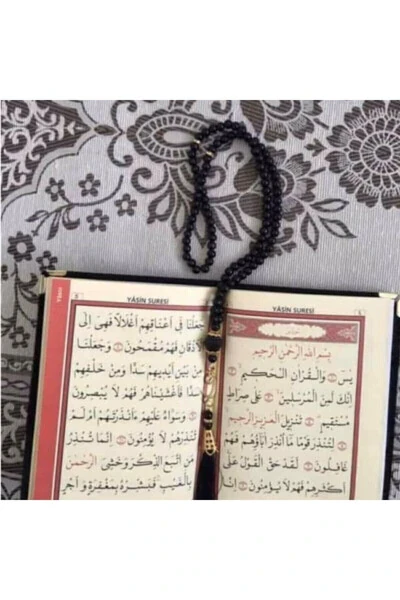 YÂSİN SURESİ
بِسْمِ اللّٰهِ الرَّحْمٰنِ الرَّحِيمِ
يٰسٓ وَالْقُرْاٰنِ الْحَكِيمِ
اِنَّكَ لَمِنَ الْمُرْسَلِينَ عَلٰى صِرَاطٍ
مُسْتَقِيمٍ تَنْزِيلَ الْعَزِيزِ الرَّحِيمِ
لِتُنْذِرَ قَوْمًا مَٓا اُنْذِرَ اٰبَٓاؤُهُمْ فَهُمْ
غَافِلُونَ لَقَدْ حَقَّ الْقَوْلُ عَلٰٓى
اَكْثَرِهِمْ فَهُمْ لَا يُؤْمِنُونَ اِنَّا
YÂSİN SURESİ
جَعَلْنَا فِٓي اَعْنَاقِهِمْ اَغْلَالًا فَهِيَ اِلَى
الْاَذْقَانِ فَهُمْ مُقْمَحُونَ وَجَعَلْنَا
مِنْ بَيْنِ اَيْدِيهِمْ سَدًّا وَمِنْ خَلْفِهِمْ
سَدًّا فَاَغْشَيْنَاهُمْ فَهُمْ لَا يُبْصِرُونَ
وَسَوَٓاءٌ عَلَيْهِمْ ءَاَنْذَرْتَهُمْ اَمْ لَمْ
تُنْذِرْهُمْ لَا يُؤْمِنُونَ اِنَّمَا تُنْذِرُ
مَنِ اتَّبَعَ الذِّكْرَ وَخَشِيَ الرَّحْمٰنَ
بِالْغَيْبِ فَبَشِّرْهُ بِمَغْفِرَةٍ وَاَجْرٍ